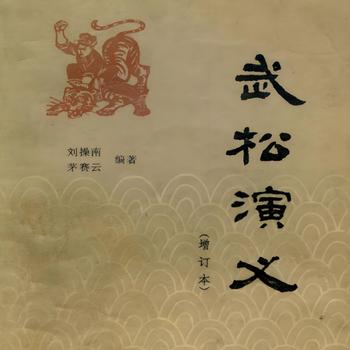 武松演义
(增订本)
刘操南
茅赛云
编著